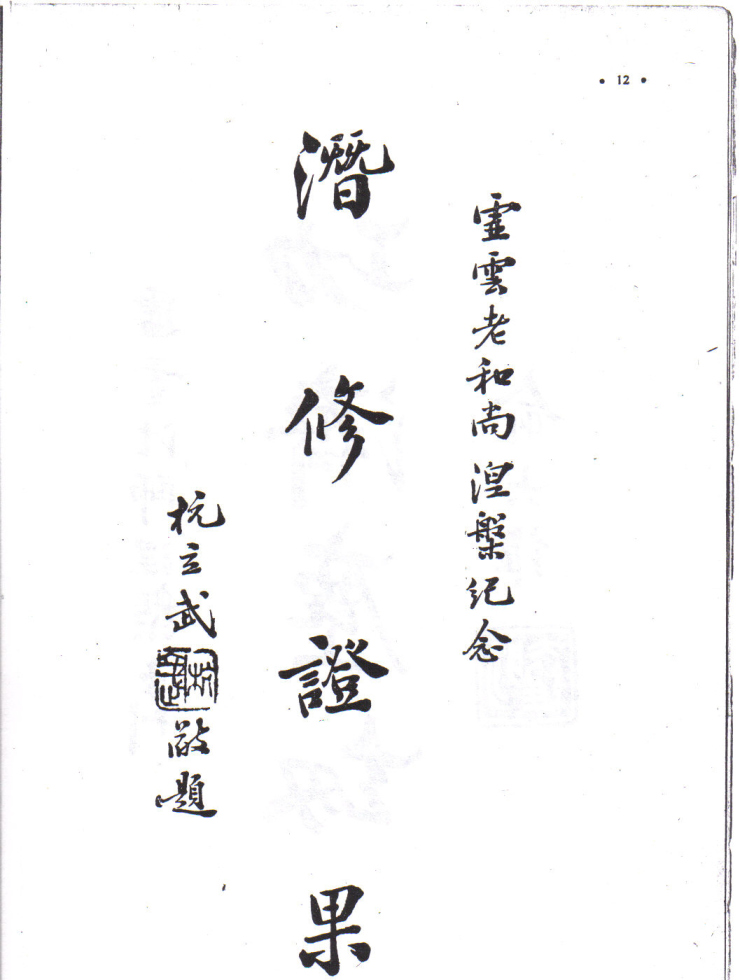 • 12 •
霊雲老和尚涅槃紀念
潛修證果
杭立武敬題